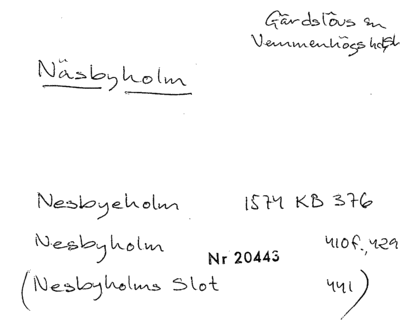 Gärdslövs sn
Vemmenhögs hd
Näsbyholm
Nesbyeholm 1574 KB 376
Nesbyholm 410f., 429
Nr 20443
(Nesbyholms Slot 441)